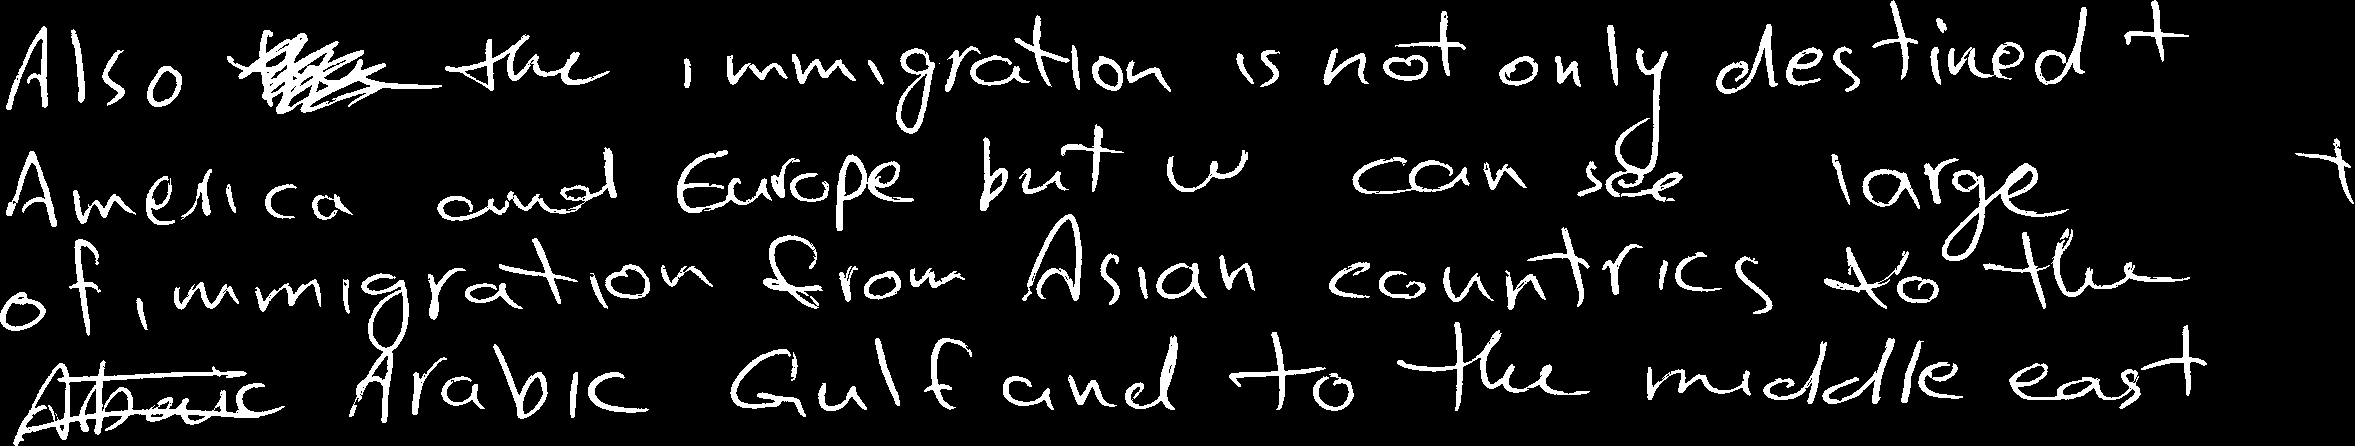 Also the immigration is not only destined t
America and Europe but w can see large t
of immigration from Asian countries to the
Arabic Gulf and to the middle east